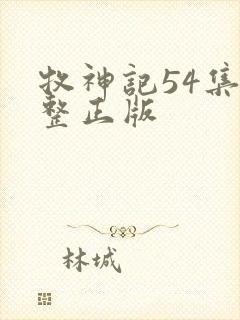 牧神記54集
整正版
林城